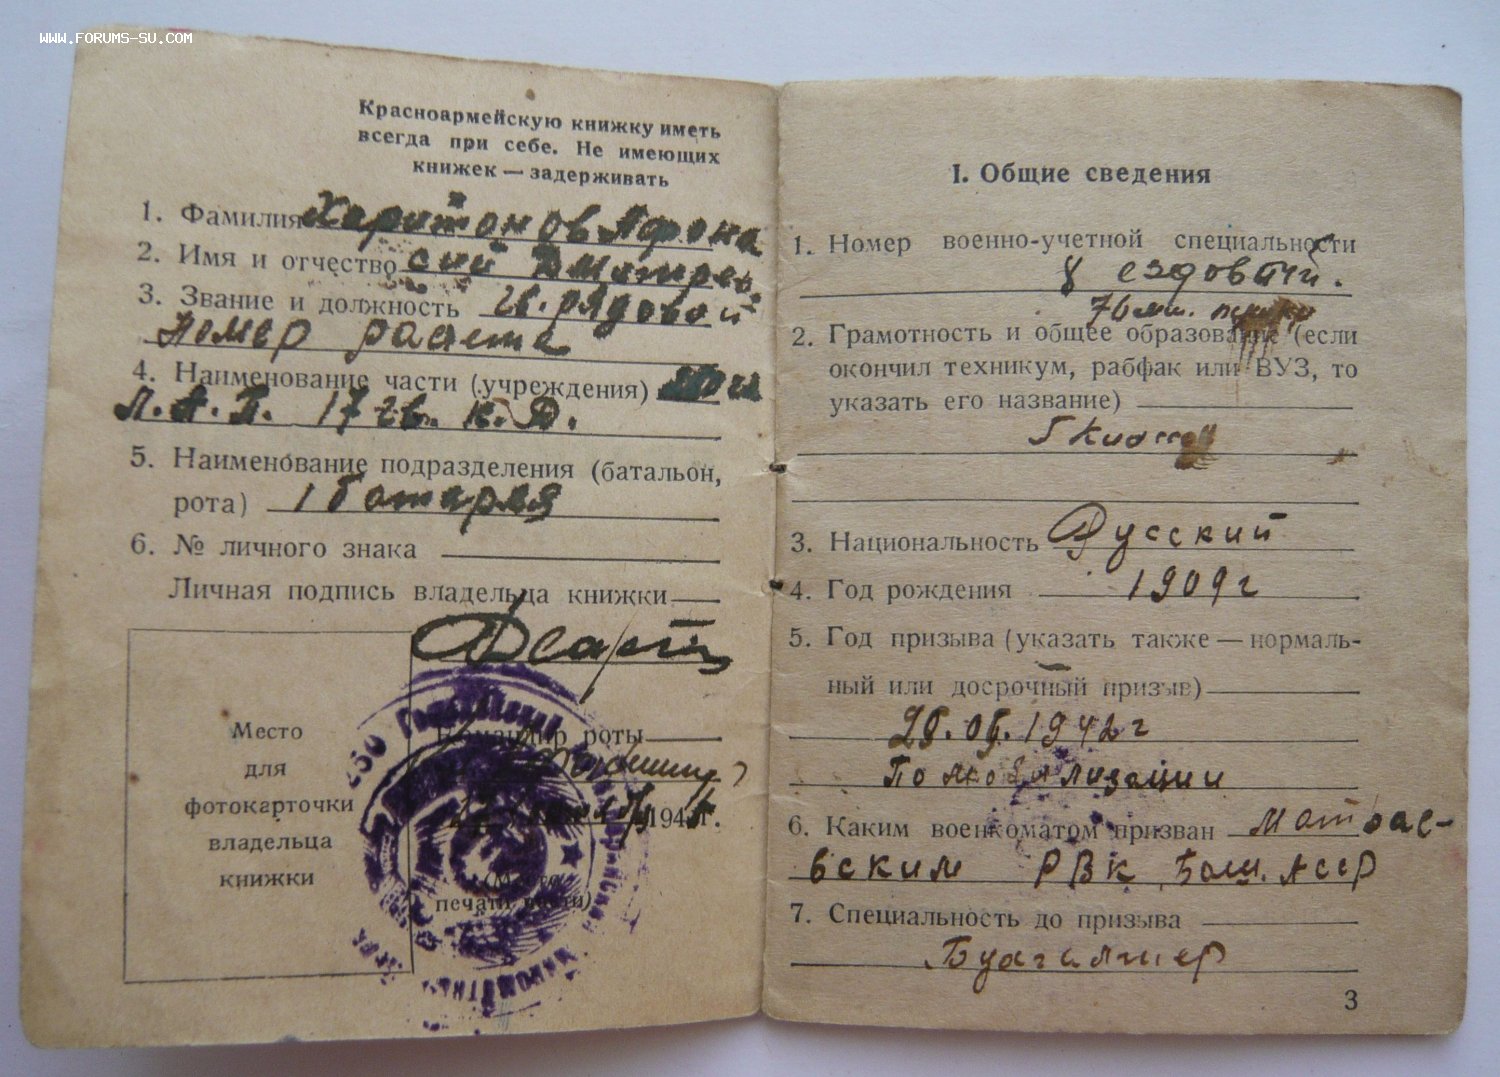 WWW.FORUMS-SU.COM
Красноармейскую книжку иметь
всегда при себе. Не имеющих
книжек — задерживать
1. Фамилия Харитонов Афона
2. Имя и отчество сий Дмитрев.
3. Звание и должность гв. рядовой
номер расчета
4. Наименование части (учреждения)
Л.А.П. 17 гв. К.Д.
5. Наименование подразделения (батальон,
рота) 1 батарея
6. № личного знака
Личная подпись владельца книжки
Место
для
фотокарточки
владельца
книжки
Командир роты
194 г.
(Место
печати части)
I. Общие сведения
1. Номер военно-учетной специальности
8 ездовый.
76 мм. пушки
2. Грамотность и общее образование (если
окончил техникум, рабфак или ВУЗ, то
указать его название)
5 классов
3. Национальность Русский
4. Год рождения 1909 г
5. Год призыва (указать также — нормаль-
ный или досрочный призыв)
1942 г
По мобилизации
6. Каким военкоматом призван
вским РВК Баш. АССР
7. Специальность до призыва
Бухгалтер
3